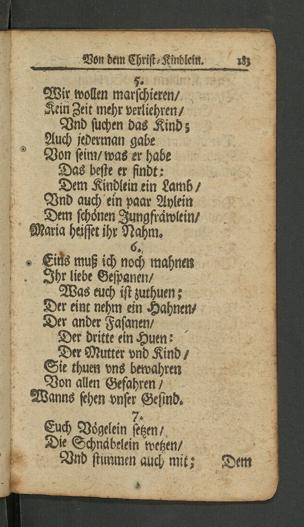 Von dem Christ-Kindlein. 183
5.
Wir wollen marschieren/
Kein Zeit mehr verliehren/
Vnd suchen das Kind;
Auch jederman gabe
Von seim/ was er habe
Das beste er findt:
Dem Kindlein ein Lamb/
Vnd auch ein paar Aylein
Dem schönen Jungfräwlein/
Maria heisset ihr Nahm.
6.
Eins muß ich noch mahnen
Ihr liebe Gespanen/
Was euch ist zuthuen;
Der eint nehm ein Hahnen/
Der ander Fasanen/
Der dritte ein Huen:
Der Mutter vnd Kind/
Sie thuen vns bewahren
Von allen Gefahren/
Wanns sehen vnser Gesind.
7.
Euch Vögelein setzen/
Die Schnäbelein wetzen/
Vnd stimmen auch mit; Dem